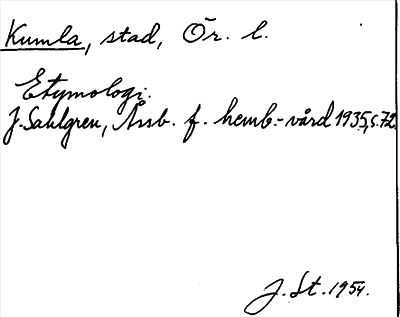 Kumla, stad, Ör. l.
Etymologi.
J. Sahlgren, Årsb. f. hemb.-vård 1935, s. 72.
J. St. 1954.